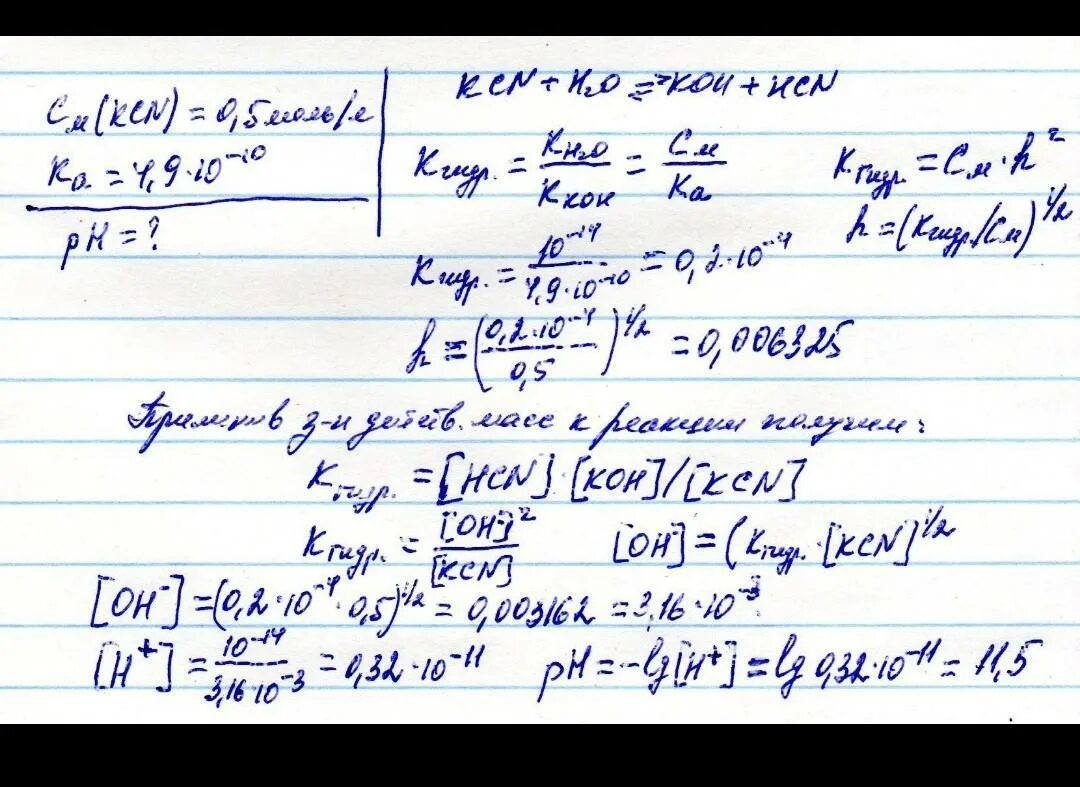 См(KCN) = 0,5 моль/л
Ka = 4,9·10⁻¹⁰
pH = ?
KCN + H₂O ⇄ KOH + HCN
Kгидр. = KH₂O/KKOH = См/Ka
Kгидр. = См·h²
h = (Kгидр./См)^1/2
Kгидр. = 10⁻¹⁴/4,9·10⁻¹⁰ = 0,2·10⁻⁴
h = (0,2·10⁻⁴/0,5)^1/2 = 0,006325
Применив з-н действ. масс к реакции получим:
Kгидр. = [HCN]·[KOH]/[KCN]
Kгидр. = [OH⁻]²/[KCN]
[OH] = (Kгидр.·[KCN])^1/2
[OH⁻] = (0,2·10⁻⁴·0,5)^1/2 = 0,003162 = 3,16·10⁻³
[H⁺] = 10⁻¹⁴/3,16·10⁻³ = 0,32·10⁻¹¹
pH = -lg[H⁺] = lg 0,32·10⁻¹¹ = 11,5